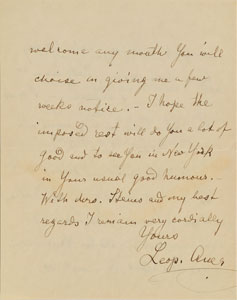 welcome any month You will
choise in giving me a few
weeks notice. - I hope the
imposed rest will do you a lot of
good and to see You in New York
in Your usual good humour.
With dero. Items and my best
regards I remain very cordially
Yours
Leop. Auer